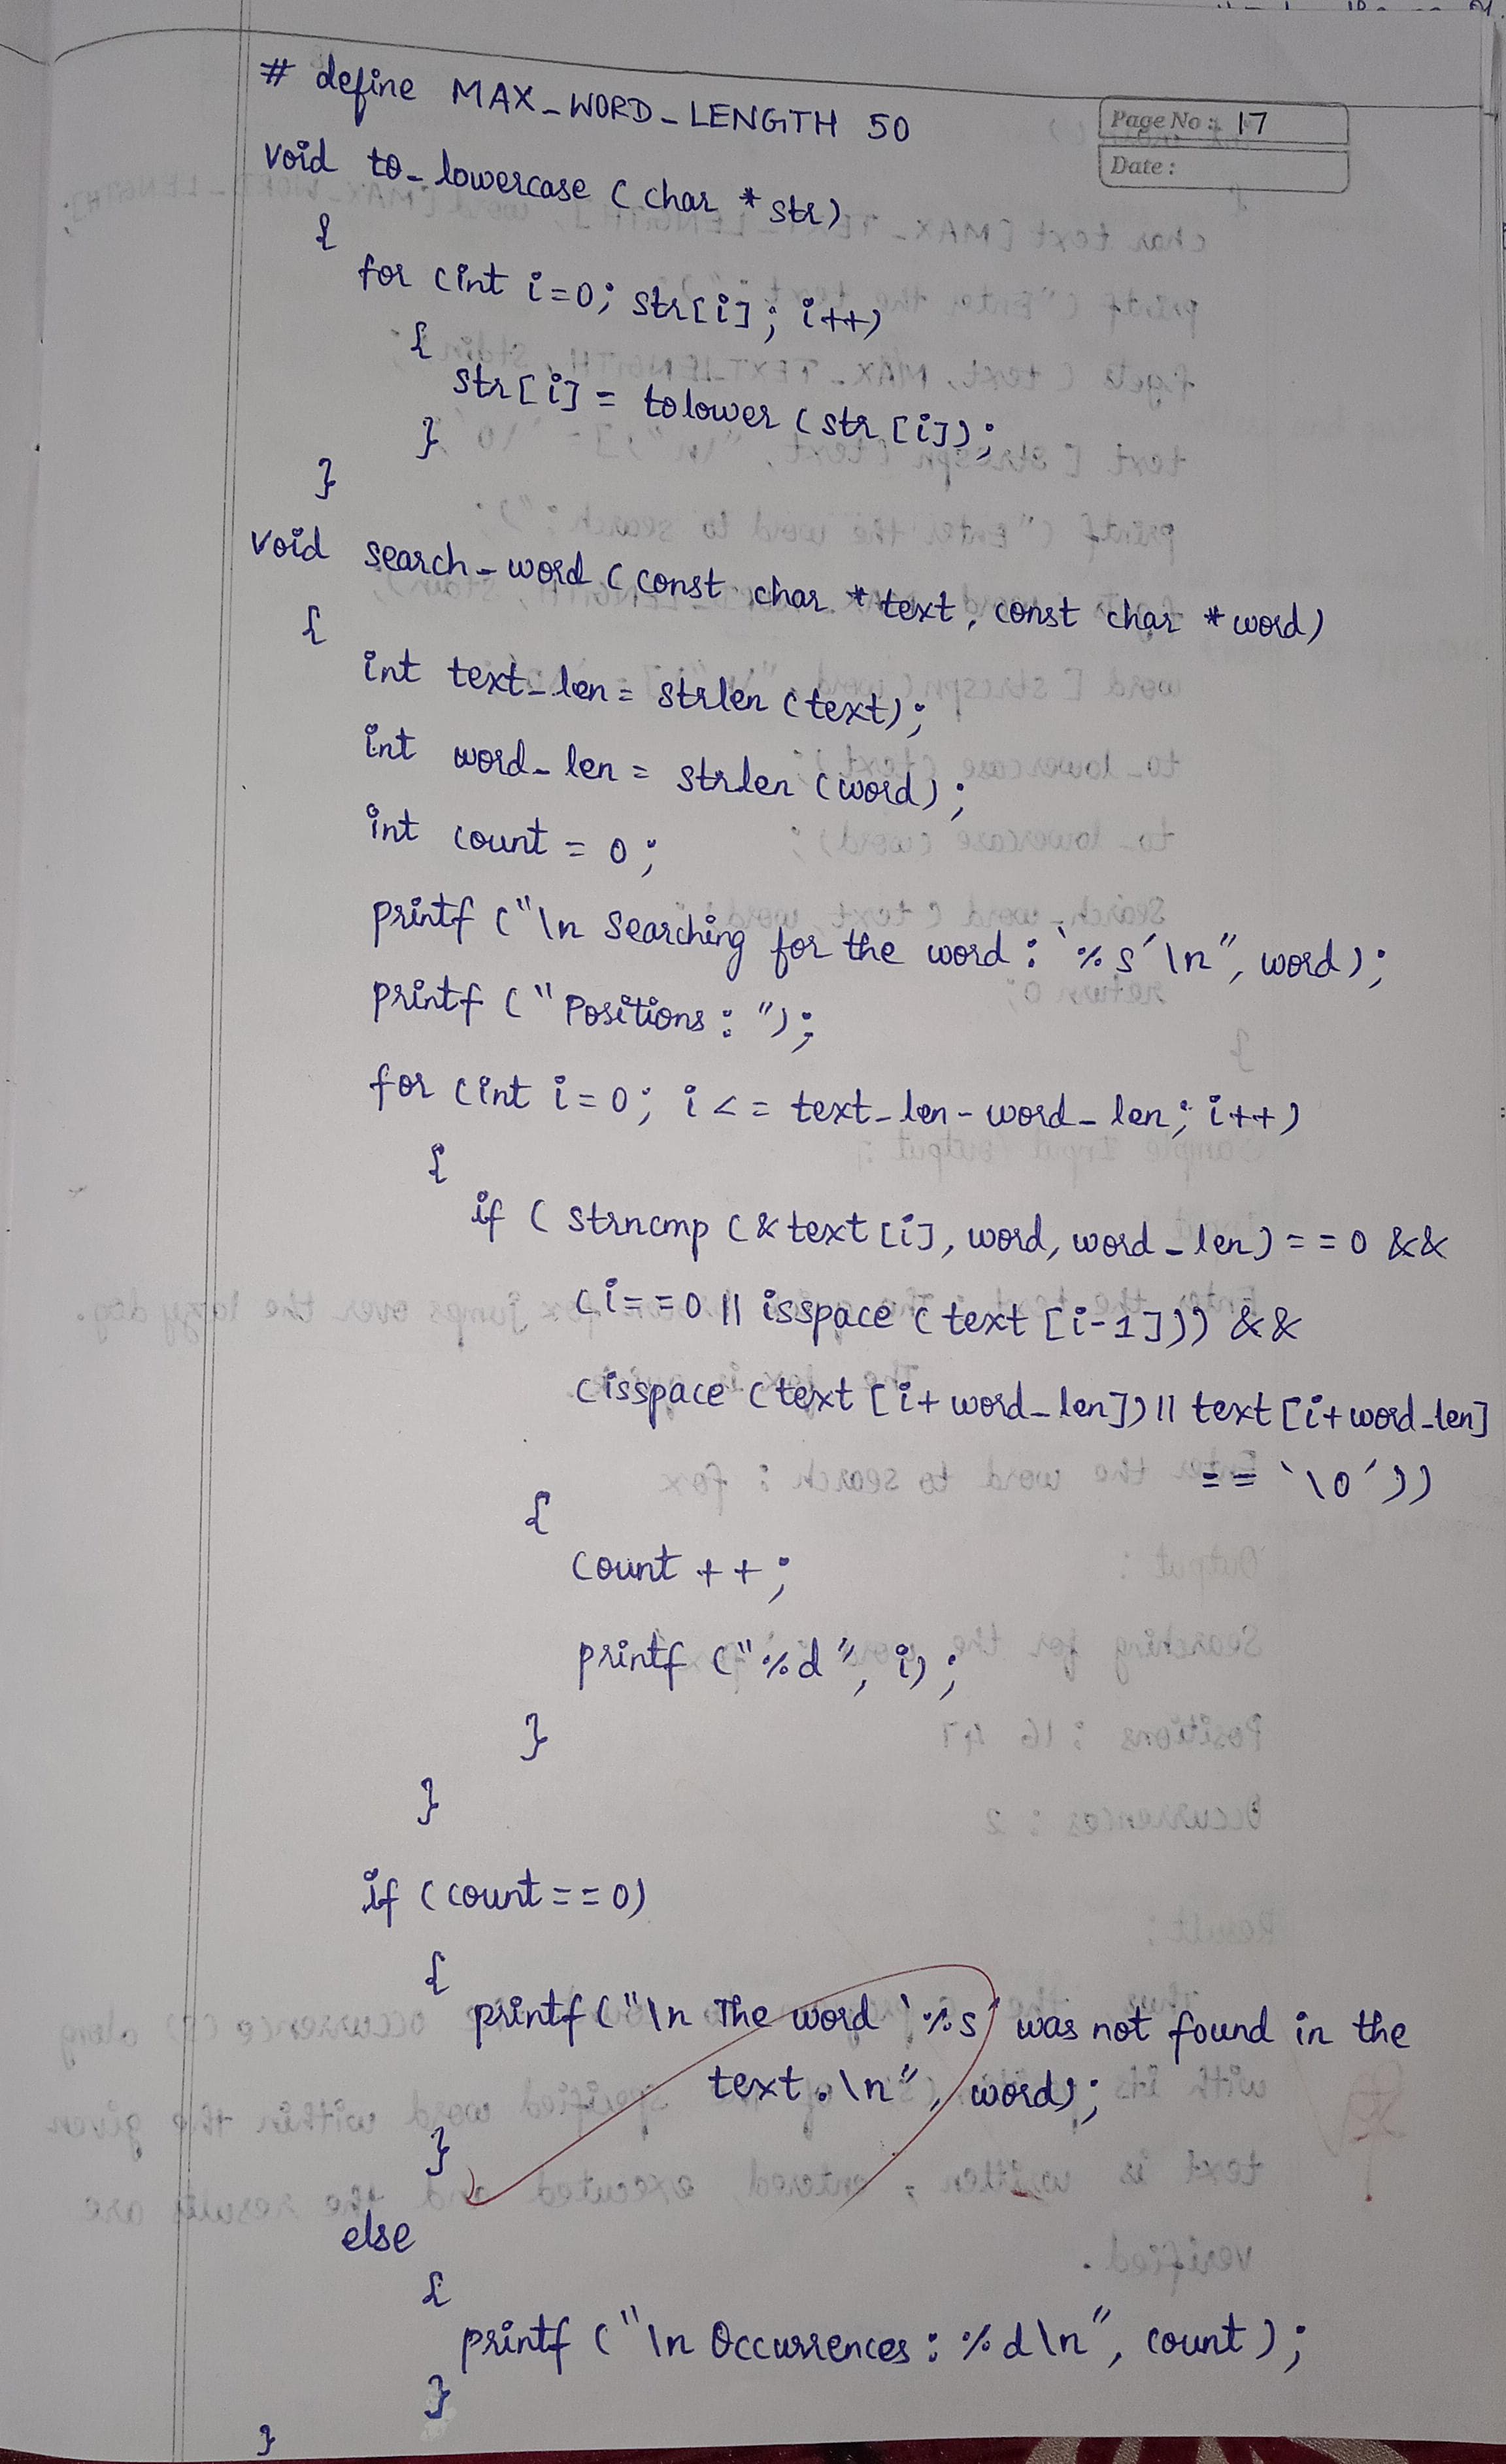 # define MAX_WORD_LENGTH 50
Page No : 17
Date :
void to_lowercase (char * str)
{
for (int i=0; str[i]; i++)
{
str[i] = tolower (str [i]);
}
}
void search_word (const char * text, const char * word)
{
int text_len = strlen (text);
int word_len = strlen (word);
int count = 0;
printf ("\n Searching for the word : '%s'\n", word);
printf ("Positions : ");
for (int i=0; i <= text_len - word_len; i++)
{
if ( strncmp (& text [i], word, word_len) == 0 &&
(i==0 || isspace (text [i-1])) &&
(isspace (text [i+ word_len]) || text [i+ word_len]
== '\0'))
{
count ++;
printf ("%d ", i);
}
}
if (count == 0)
{
printf ("\n The word '%s' was not found in the
text.\n", word);
}
else
{
printf ("\n Occurrences : %d\n", count);
}
}